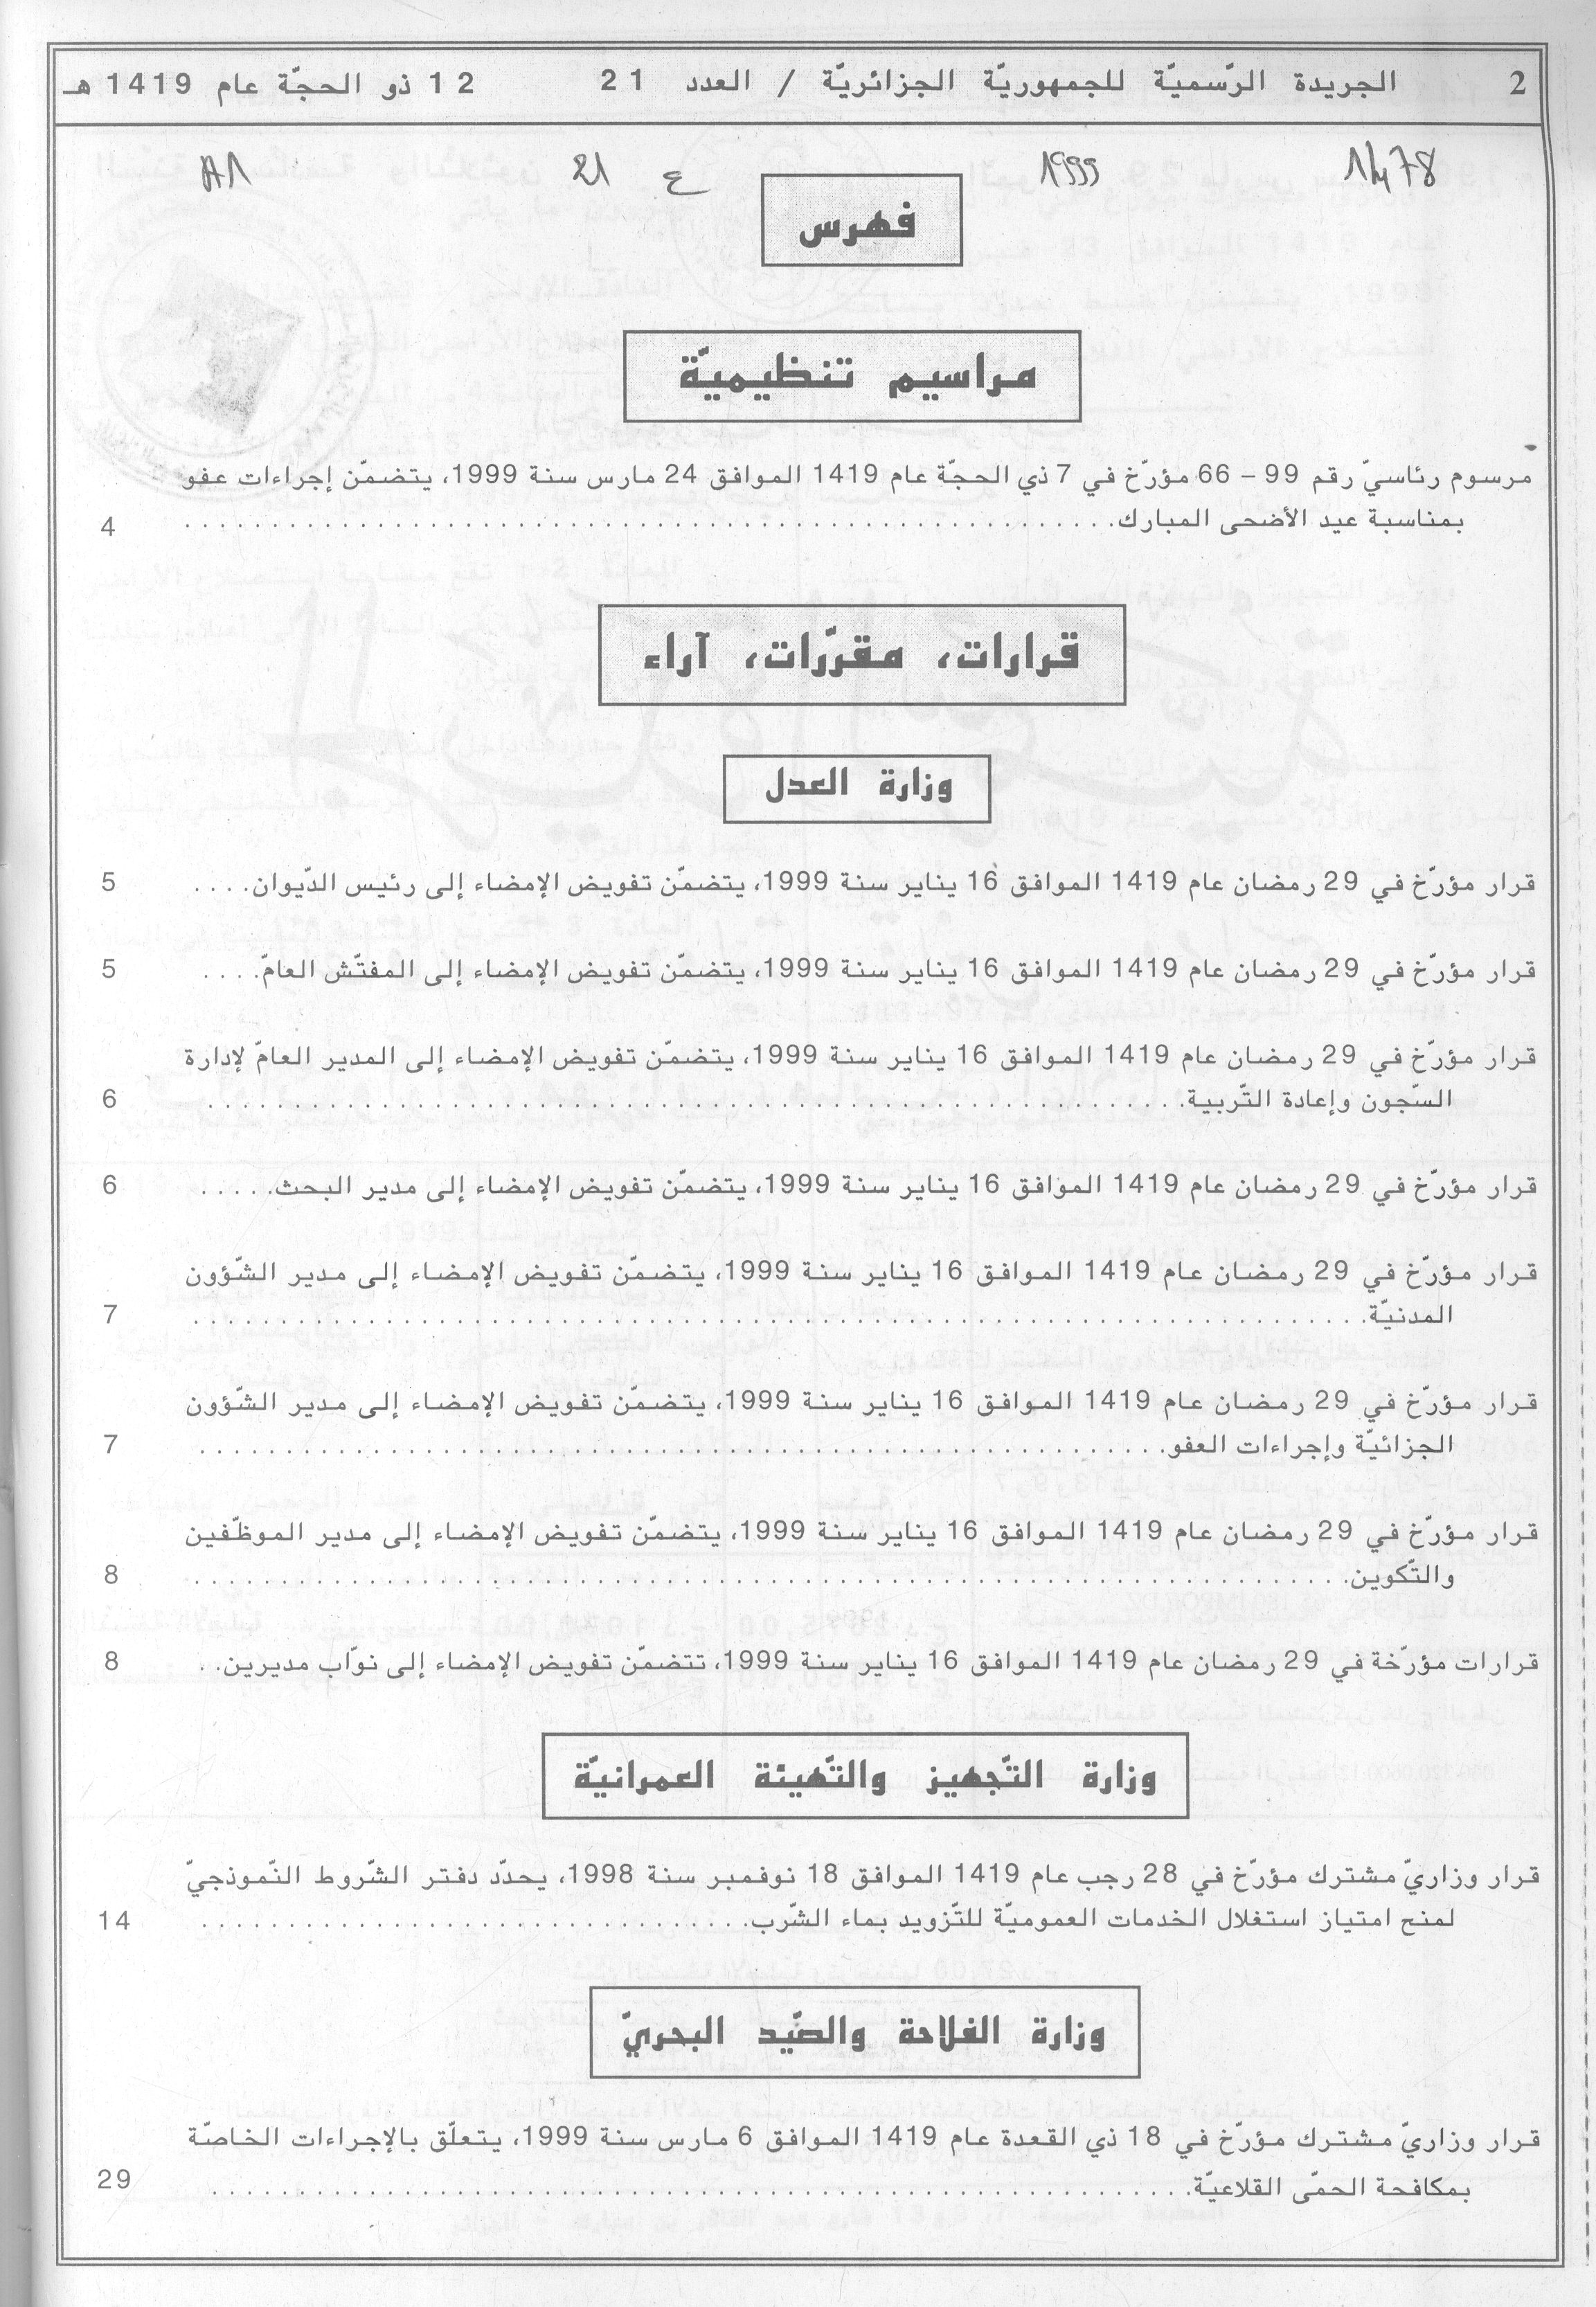 2 الجريدة الرّسميّة للجمهوريّة الجزائريّة / العدد 21 12 ذو الحجّة عام 1419 هـ
1478 1999 ع 21 A1
فهرس
مراسيم تنظيميّة
مرسوم رئاسيّ رقم 99 - 66 مؤرّخ في 7 ذي الحجّة عام 1419 الموافق 24 مارس سنة 1999، يتضمّن إجراءات عفو
بمناسبة عيد الأضحى المبارك. 4
قرارات، مقرّرات، آراء
وزارة العدل
قرار مؤرّخ في 29 رمضان عام 1419 الموافق 16 يناير سنة 1999، يتضمّن تفويض الإمضاء إلى رئيس الدّيوان. 5
قرار مؤرّخ في 29 رمضان عام 1419 الموافق 16 يناير سنة 1999، يتضمّن تفويض الإمضاء إلى المفتّش العامّ. 5
قرار مؤرّخ في 29 رمضان عام 1419 الموافق 16 يناير سنة 1999، يتضمّن تفويض الإمضاء إلى المدير العامّ لإدارة
السّجون وإعادة التّربية. 6
قرار مؤرّخ في 29 رمضان عام 1419 الموافق 16 يناير سنة 1999، يتضمّن تفويض الإمضاء إلى مدير البحث. 6
قرار مؤرّخ في 29 رمضان عام 1419 الموافق 16 يناير سنة 1999، يتضمّن تفويض الإمضاء إلى مدير الشّؤون
المدنيّة. 7
قرار مؤرّخ في 29 رمضان عام 1419 الموافق 16 يناير سنة 1999، يتضمّن تفويض الإمضاء إلى مدير الشّؤون
الجزائيّة وإجراءات العفو. 7
قرار مؤرّخ في 29 رمضان عام 1419 الموافق 16 يناير سنة 1999، يتضمّن تفويض الإمضاء إلى مدير الموظّفين
والتّكوين. 8
قرارات مؤرّخة في 29 رمضان عام 1419 الموافق 16 يناير سنة 1999، تتضمّن تفويض الإمضاء إلى نوّاب مديرين. 8
وزارة التّجهيز والتّهيئة العمرانيّة
قرار وزاريّ مشترك مؤرّخ في 28 رجب عام 1419 الموافق 18 نوفمبر سنة 1998، يحدّد دفتر الشّروط النّموذجيّ
لمنح امتياز استغلال الخدمات العموميّة للتّزويد بماء الشّرب. 14
وزارة الفلاحة والصّيد البحريّ
قرار وزاريّ مشترك مؤرّخ في 18 ذي القعدة عام 1419 الموافق 6 مارس سنة 1999، يتعلّق بالإجراءات الخاصّة
بمكافحة الحمّى القلاعيّة. 29